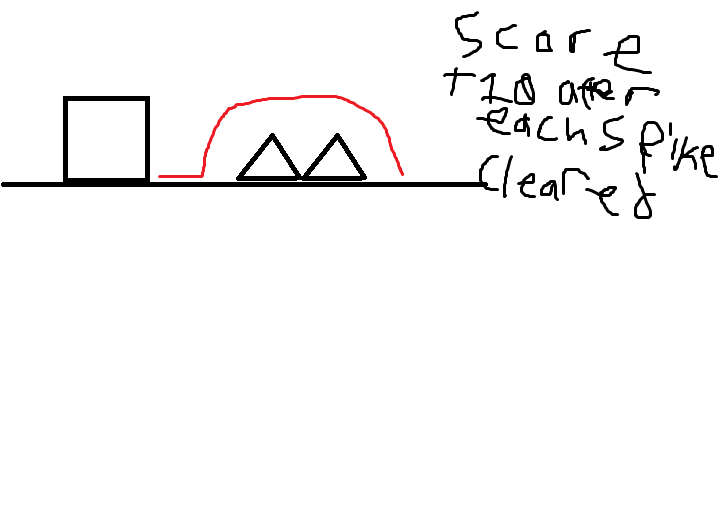 Score
+10 after
each spike
cleared